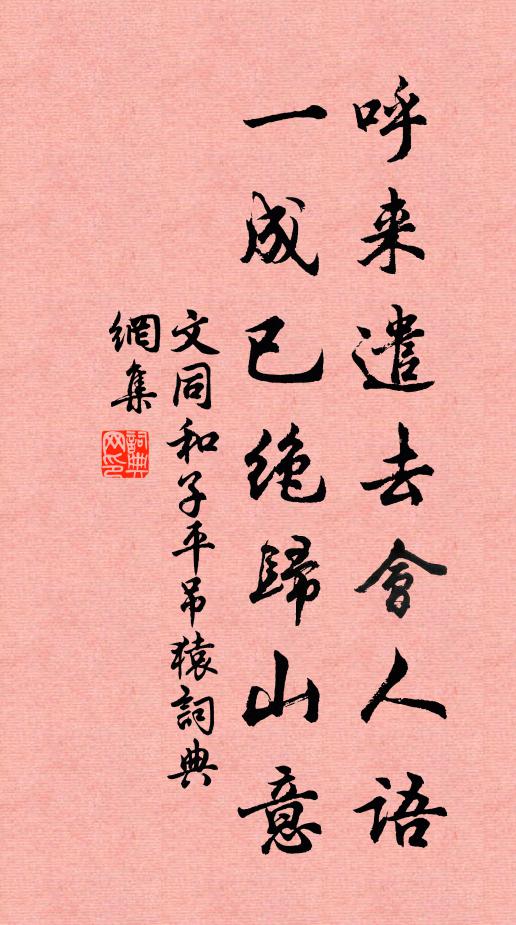 呼来遣去會人語
一成已絶歸山意
文同和子平吊猿詞典
網集
詞典
网印